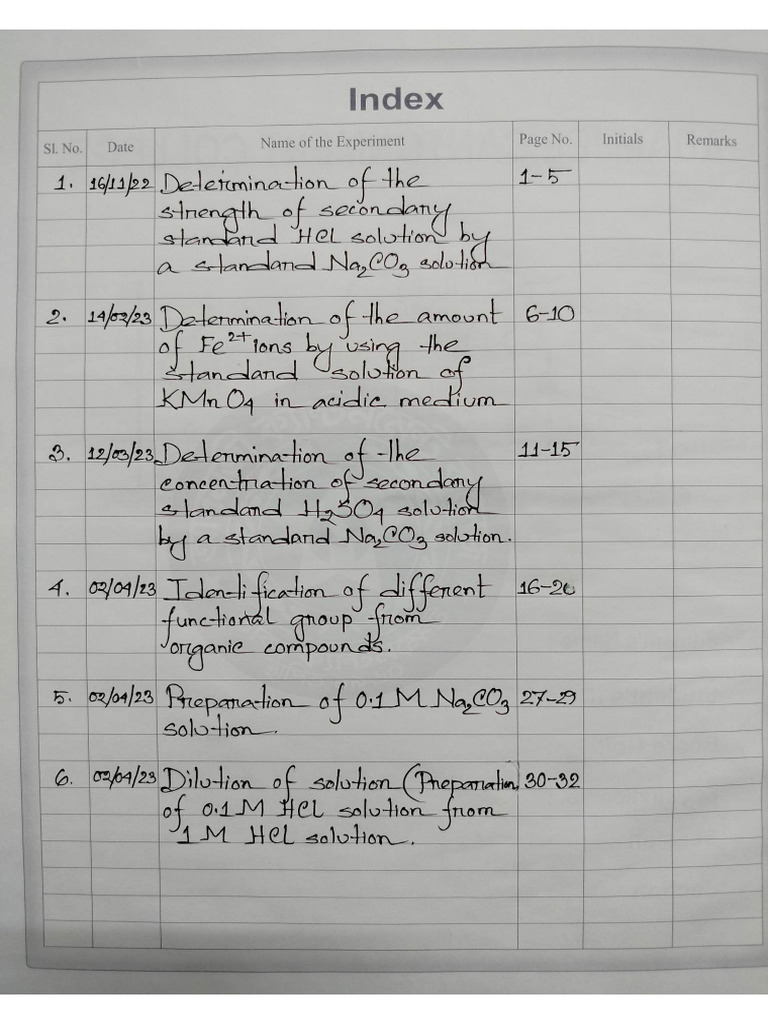 Index
Sl. No. Date Name of the Experiment Page No. Initials Remarks
1. 16/11/22 Determination of the 1-5
strength of secondary
standard HCl solution by
a standard Na₂CO₃ solution
2. 14/02/23 Determination of the amount 6-10
of Fe²⁺ ions by using the
standard solution of
KMnO4 in acidic medium
3. 12/03/23 Determination of the 11-15
concentration of secondary
standard H₂SO4 solution
by a standard Na₂CO₃ solution.
4. 02/04/23 Identification of different 16-26
functional group from
organic compounds.
5. 02/04/23 Preparation of 0.1 M Na₂CO₃ 27-29
solution.
6. 02/04/23 Dilution of solution (Preparation 30-32
of 0.1 M HCl solution from
1 M HCl solution.